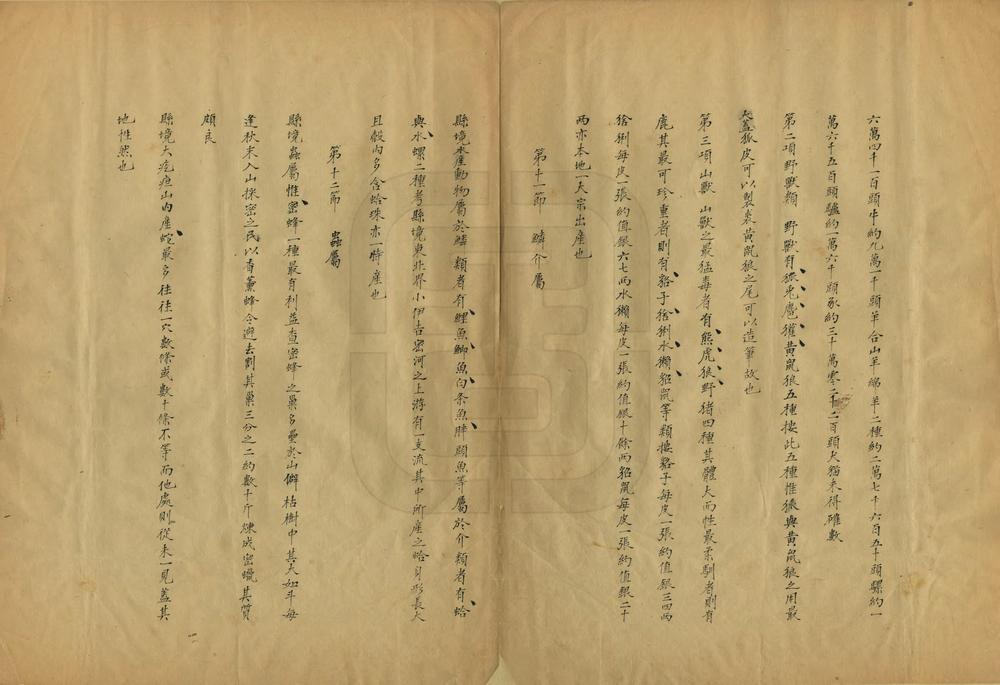 六萬四千一百頭牛約九萬一千頭羊合山羊綿羊二種約二萬七千六百五十頭騾約一
萬六千五百頭驢約一萬六千頭豕約三十萬零二千二百頭犬貓未得確數
第二項野獸類 野獸有狼兎麅獾黃鼠狼五種按此五種惟狼與黃鼠狼之用最
大蓋狐皮可以製裘黃鼠狼之尾可以造筆故也
第三項山獸 山獸之最猛毒者有熊虎狼野猪四種其體大而性最柔馴者則有
鹿其最可珍重者則有貉子猞猁水獺貂鼠等類按貉子每皮一張約值銀三四兩
猞猁每皮一張約值銀六七兩水獺每皮一張約值銀十餘兩貂鼠每皮一張約值銀二十
兩亦本地一大宗出產也
第十一節 鱗介屬
縣境水產動物屬於鱗類者有鯉魚鯽魚白条魚胖頭魚等屬於介類者有蛤
與水螺二種考縣境東北界小伊吉密河之上游有一支流其中所產之蛤身形長大
且殼內多含蛤珠亦一特產也
第十二節 蟲屬
縣境蟲屬惟蜜蜂一種最有利益查蜜蜂之巢多壘於山僻枯樹中其大如斗每
逢秋末入山採密之民以香薰蜂令避去割其巢三分之二約數十斤煉成密蠟其質
頗良
縣境大疙疸山內產蛇最多往往一穴數條或數十條不等而他處則從未一見蓋其
地性然也